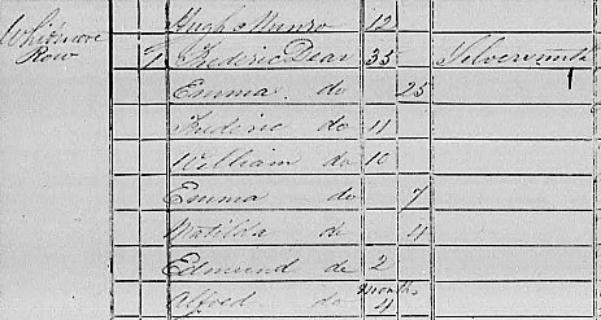 Hugh Munro 12
Whitmore Row 1 Frederic Dear 35 Silversmith
Emma do 25
Frederic do 11
William do 10
Emma do 7
Matilda do 4
Edmund do 2
Alfred do Months 4